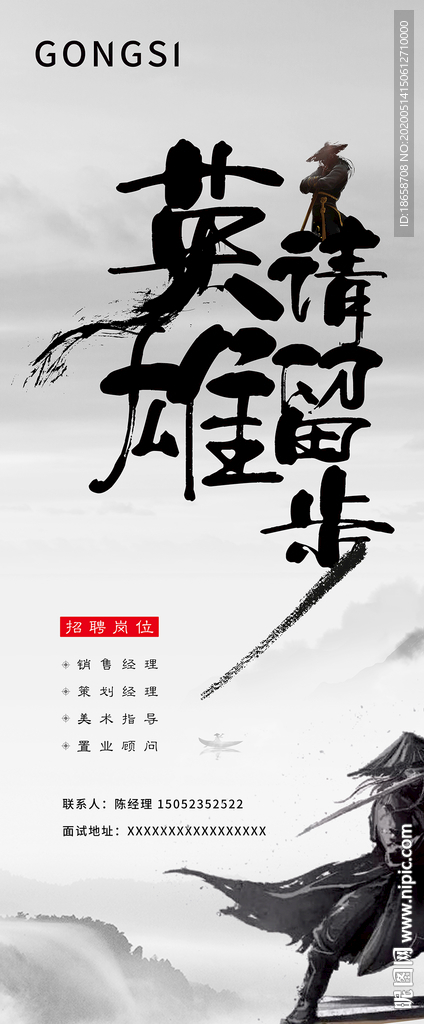 GONGSI
英雄
请留步
招聘岗位
销售经理
策划经理
美术指导
置业顾问
联系人：陈经理 15052352522
面试地址：XXXXXXXXXXXXXXXXX
ID:18658708 NO:20200514150612710000
昵图网 www.nipic.com